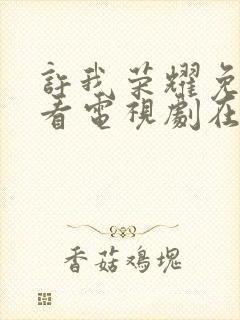 許我荣耀免
看電視劇在
香菇鸡塊